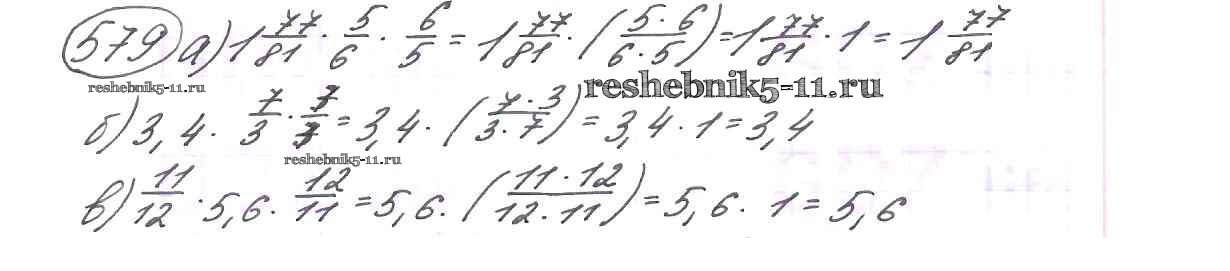 579 а) 1 77/81 · 5/6 · 6/5 = 1 77/81 · (5·6/6·5) = 1 77/81 · 1 = 1 77/81
reshebnik5-11.ru
reshebnik5-11.ru
б) 3,4 · 7/3 · 3/7 = 3,4 · (7·3/3·7) = 3,4 · 1 = 3,4
reshebnik5-11.ru
в) 11/12 · 5,6 · 12/11 = 5,6 · (11·12/12·11) = 5,6 · 1 = 5,6